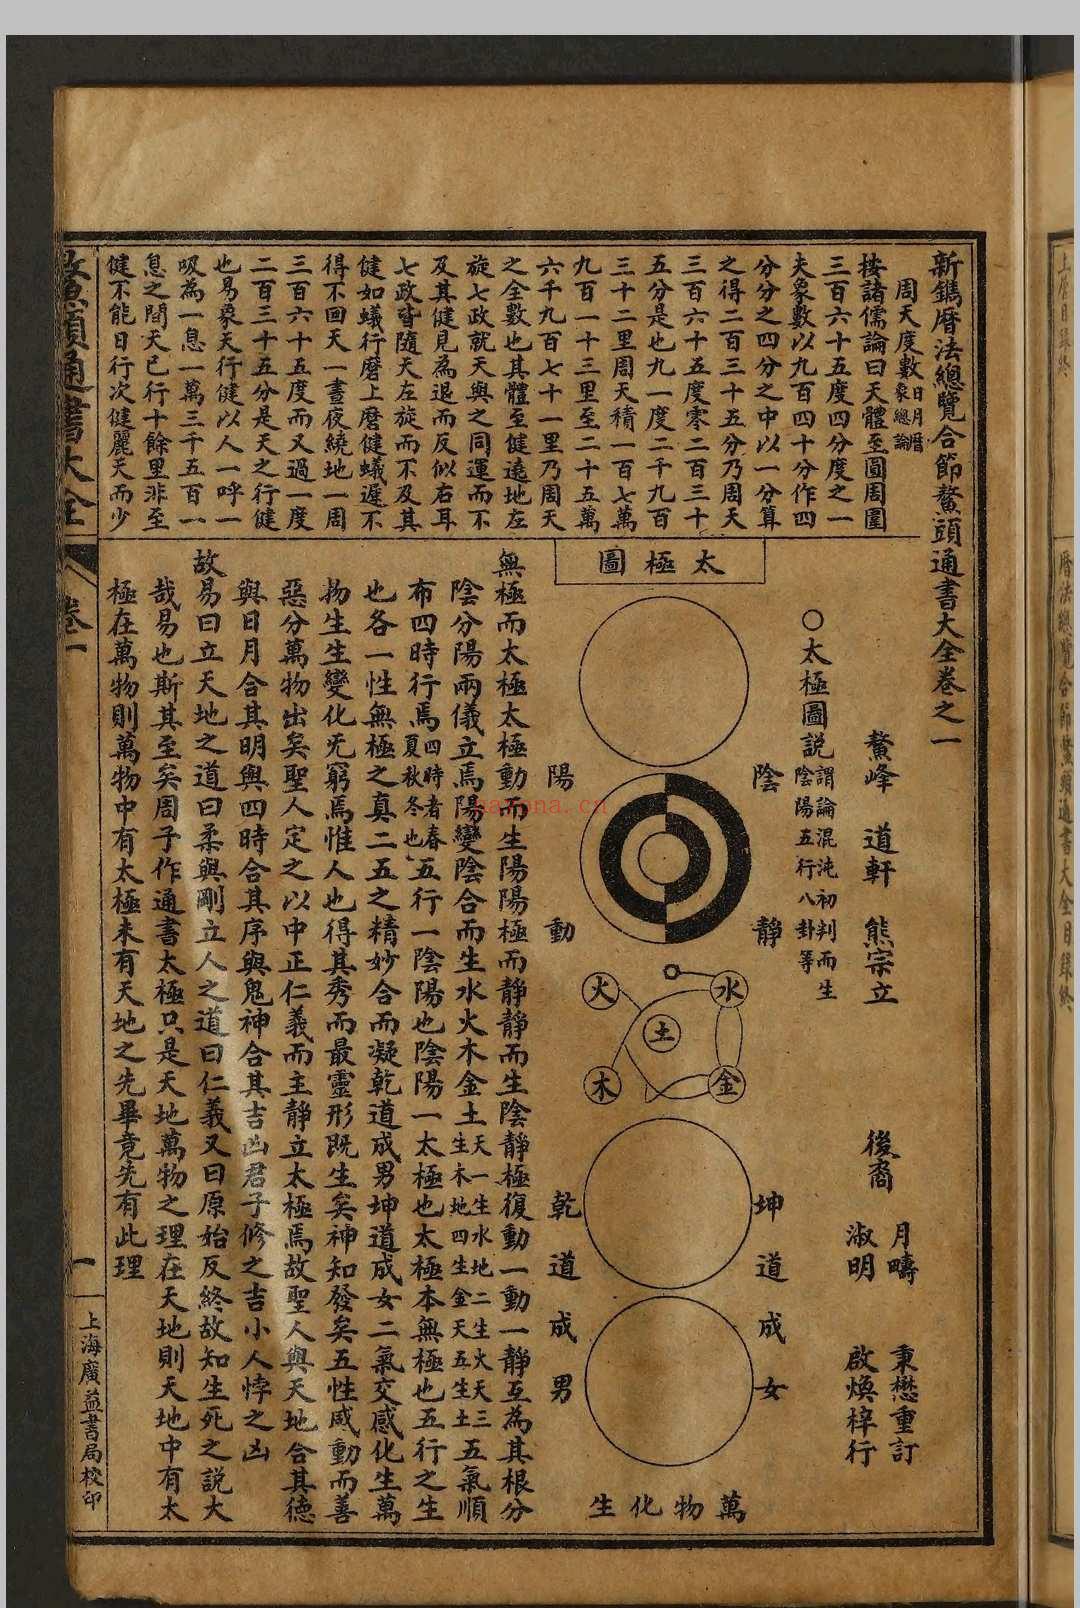 新鐫曆法總覽合節鰲頭通書大全卷之一
鰲峰　道軒　熊宗立
後裔
月疇　秉懋重訂
淑明　啟煥梓行
周天度數日月曆象總論
按諸儒論曰天體至圓周圍
三百六十五度四分度之一
夫象數以九百四十分作四
分分之四分之中以一分算
之得二百三十五分乃周天
三百六十五度零二百三十
五分是也九一度二千九百
三十二里周天積一百七萬
九百一十三里至二十五萬
六千九百七十一里乃周天
之全數也其體至健遶地左
旋七政就天與之同運而不
及其健見為退而反似右耳
七政皆隨天左旋而不及其
健如蟻行磨上磨健蟻遲不
得不回天一晝夜繞地一周
三百六十五度而又過一度
二百三十五分是天之行健
也易象天行健以人一呼一
吸為一息一萬三千五百一
息之間天已行十餘里非至
健不能日行次健麗天而少
〇太極圖説謂論混沌初判而生陰陽五行八卦等
太極圖
陰靜
陽動
水
火
土
金
木
坤道成女
乾道成男
萬物化生
無極而太極太極動而生陽陽極而靜靜而生陰靜極復動一動一靜互為其根分
陰分陽兩儀立焉陽變陰合而生水火木金土天一生水地二生火天三生木地四生金天五生土五氣順
布四時行焉四時者春夏秋冬也五行一陰陽也陰陽一太極也太極本無極也五行之生
也各一性無極之真二五之精妙合而凝乾道成男坤道成女二氣交感化生萬
物生生變化无窮焉惟人也得其秀而最靈形既生矣神知發矣五性感動而善
惡分萬物出矣聖人定之以中正仁義而主靜立太極焉故聖人與天地合其德
與日月合其明與四時合其序與鬼神合其吉凶君子修之吉小人悖之凶
故易曰立天地之道曰柔與剛立人之道曰仁義又曰原始反終故知生死之説大
哉易也斯其至矣周子作通書太極只是天地萬物之理在天地則天地中有太
極在萬物則萬物中有太極未有天地之先畢竟先有此理
鰲頭通書大全
卷一
一
上海廣益書局校印